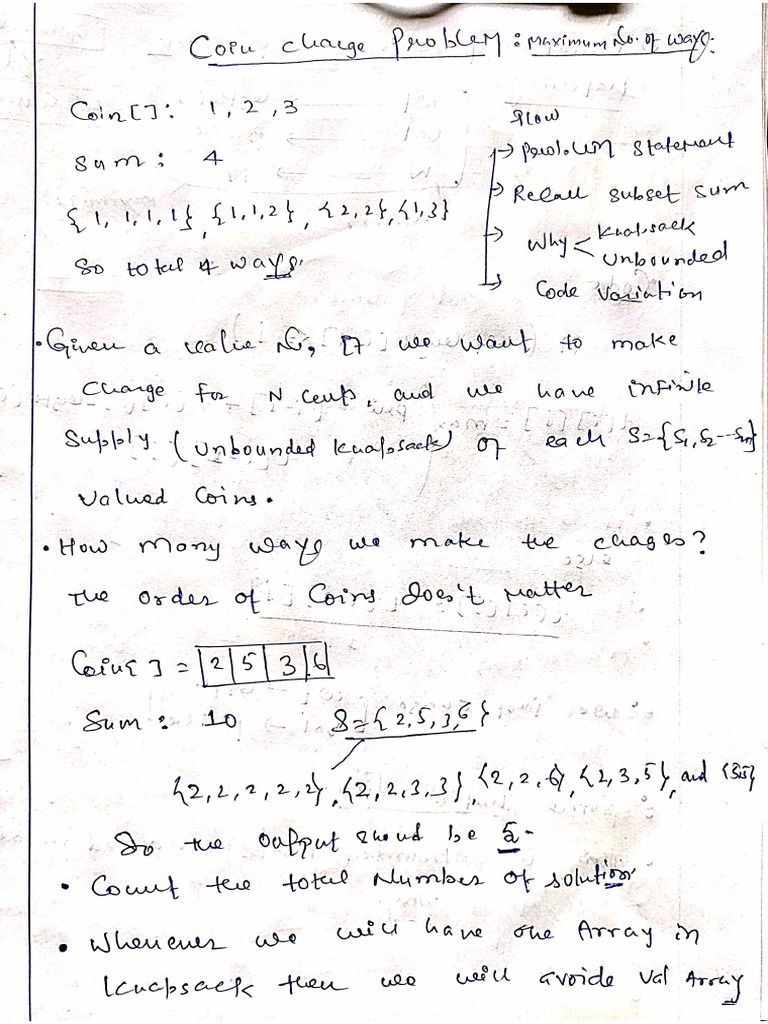 Coin change Problem : Maximum No. of ways.
Coin[] : 1, 2, 3
Sum : 4
{1, 1, 1, 1}, {1, 1, 2}, {2, 2}, {1, 3}
So total 4 ways.
Flow
→ Problem Statement
→ Recall subset sum
→ Why < Knapsack
Unbounded
→ Code Variation
• Given a value N, If we want to make
change for N cents, and we have infinite
Supply (Unbounded Knapsack) of each S={S1, S2 -- Sm}
valued Coins.
• How many ways we make the chages?
The order of Coins doesn't matter
Coin[] = | 2 | 5 | 3 | 6 |
Sum : 10 S={2, 5, 3, 6}
{2, 2, 2, 2, 2}, {2, 2, 3, 3}, {2, 2, 6}, {2, 3, 5}, and {5,5}
So the output shoud be 5.
• Count the total Number of solution.
• Whenever we will have one Array in
Knapsack then we will avoide val Array